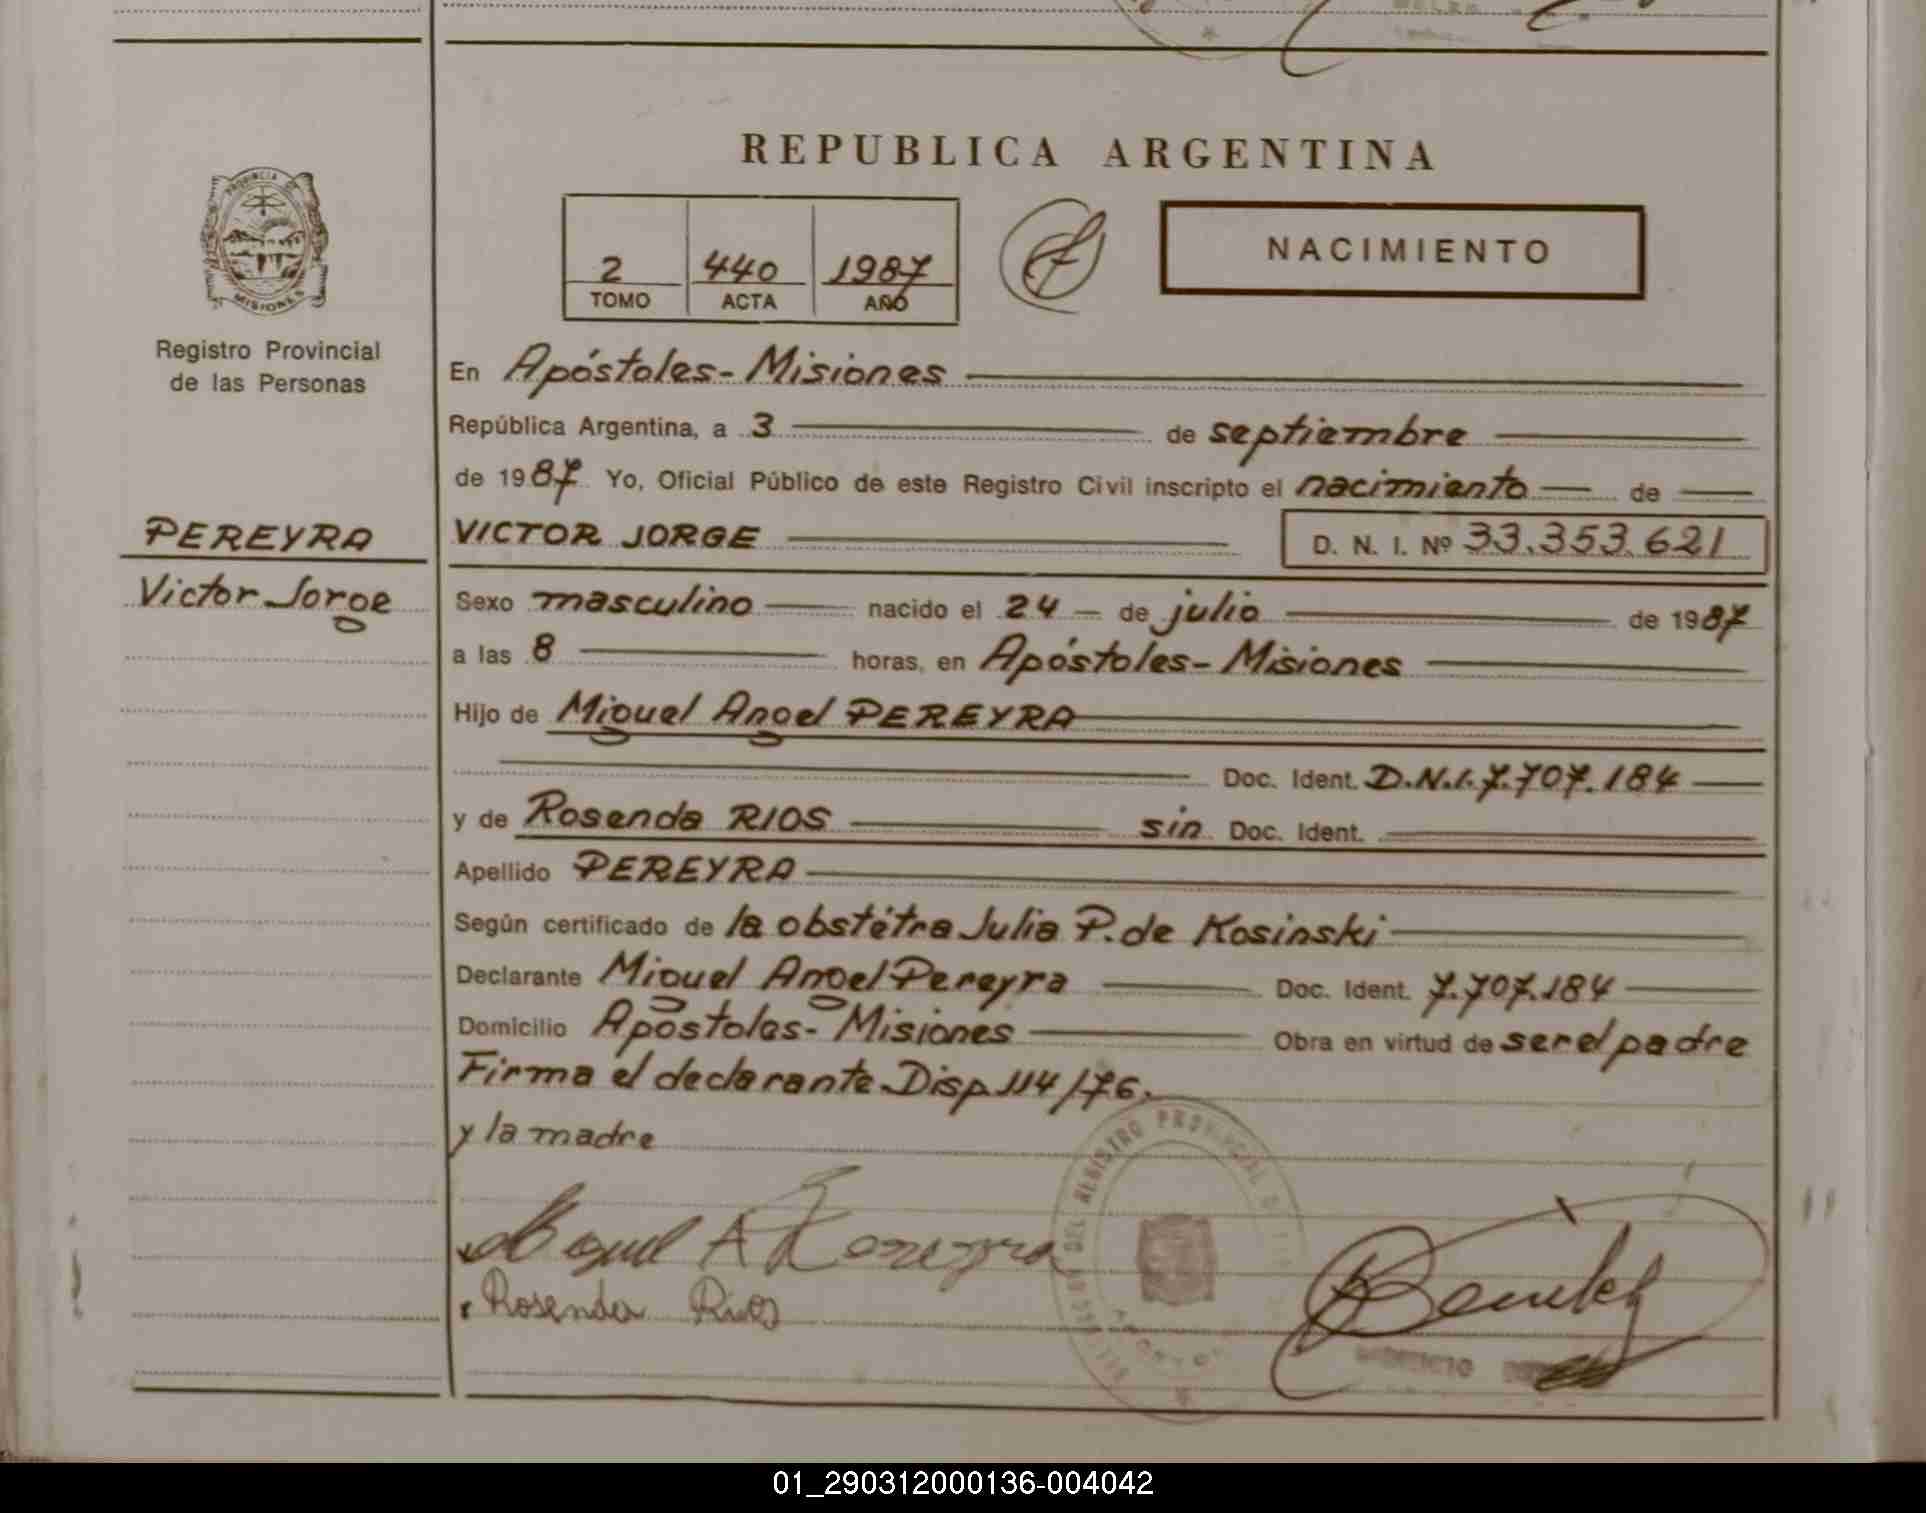 REPUBLICA ARGENTINA
PROVINCIA DE
MISIONES
Registro Provincial
de las Personas
2 440 1987
TOMO ACTA AÑO
NACIMIENTO
En Apóstoles - Misiones
República Argentina, a 3 de septiembre
de 1987 Yo, Oficial Público de este Registro Civil inscripto el nacimiento de
PEREYRA
Victor Jorge
VICTOR JORGE D. N. I. Nº 33.353.621
Sexo masculino nacido el 24 de julio de 1987
a las 8 horas, en Apóstoles - Misiones
Hijo de Miguel Angel PEREYRA
Doc. Ident. D.N.I. 7.707.184
y de Rosenda RIOS sin Doc. Ident.
Apellido PEREYRA
Según certificado de la obstétra Julia P. de Kosinski
Declarante Miguel Angel Pereyra Doc. Ident. 7.707.184
Domicilio Apóstoles - Misiones Obra en virtud de ser el padre
Firma el declarante Disp. 114/76.
y la madre
DEL REGISTRO PROVINCIAL
Miguel A Pereyra
Rosenda Rios
01_290312000136-004042